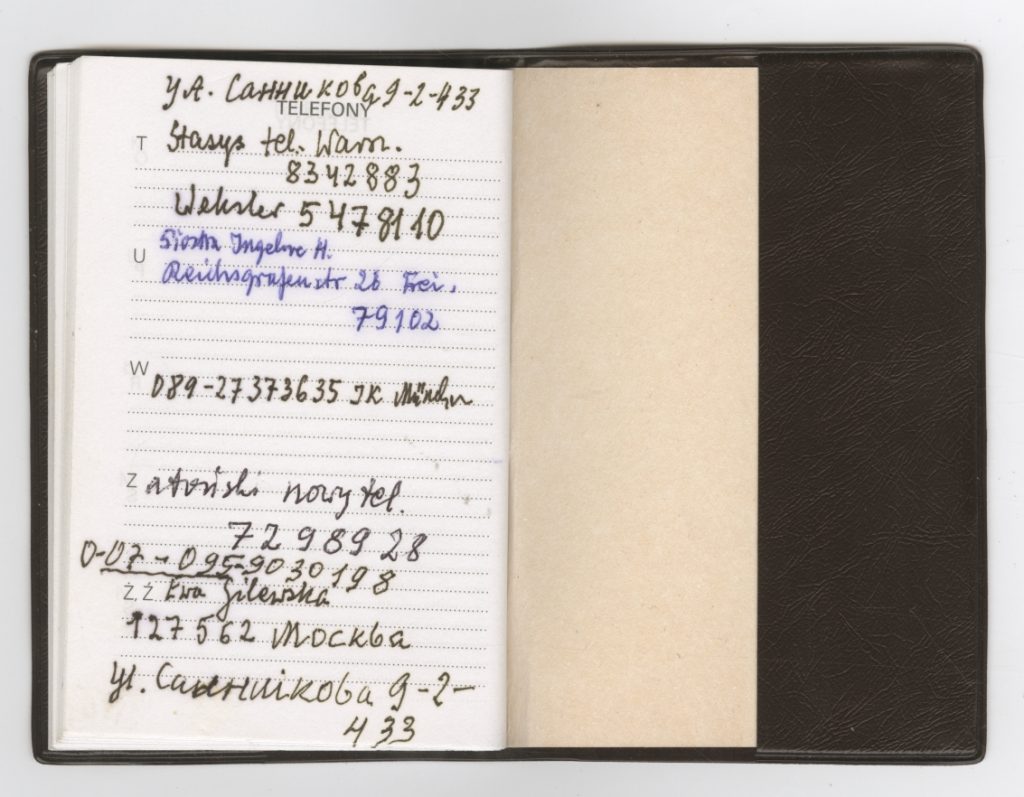 ул. Санникова 9-2-433
TELEFONY
T
Stasys tel. Warsz.
8342883
Weksler 5478110
U
Siostra Ingelore H.
Reichsgrafenstr 26 Frei.
79102
W
089-27373635 JK München
Z atoński nowy tel.
7298928
0-07-095-9030198
Ż, Ź Ewa Zilewska
127562 Москва
ул. Санникова 9-2-
433